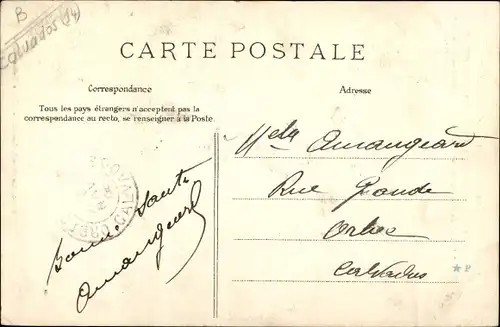 B
Calvados (14)
CARTE POSTALE
Correspondance
Adresse
Tous les pays étrangers n'acceptent pas la
correspondance au recto, se renseigner à la Poste
Bonne Santé
Amangeard
Amangeard
Rue Grande
Orbec
Calvados
CALVADOS